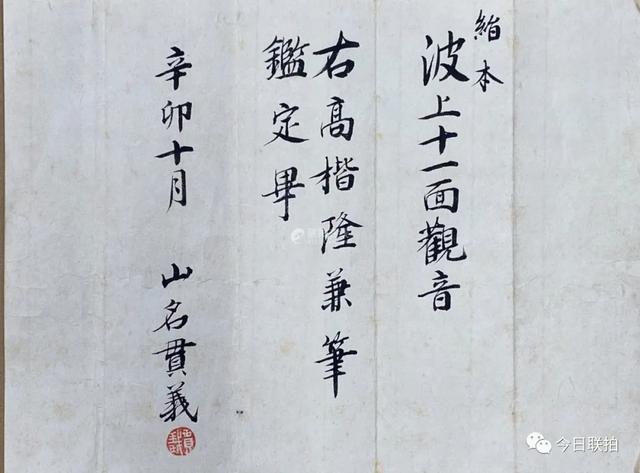 絹本
波上十一面觀音
右高楷隆兼筆
鑑定畢
辛卯十月 山名貫義
今日联拍